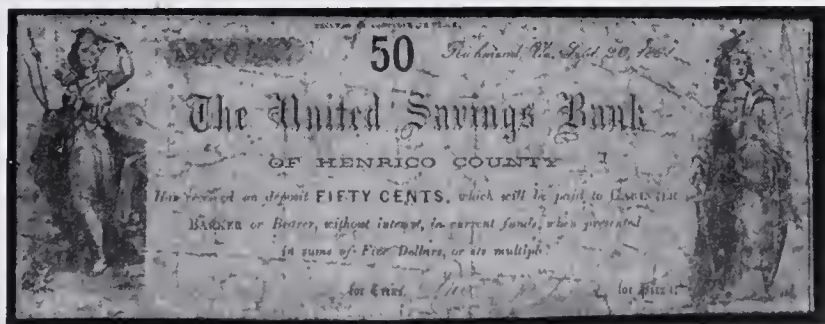 50 Richmond, Va., 20, 186
The United Savings Bank
OF HENRICO COUNTY
Has received on deposit FIFTY CENTS, which will be paid to
BARKER or Bearer, without interest, in current funds, when presented
in sums of Five Dollars, or its multiple.
for Cash, for